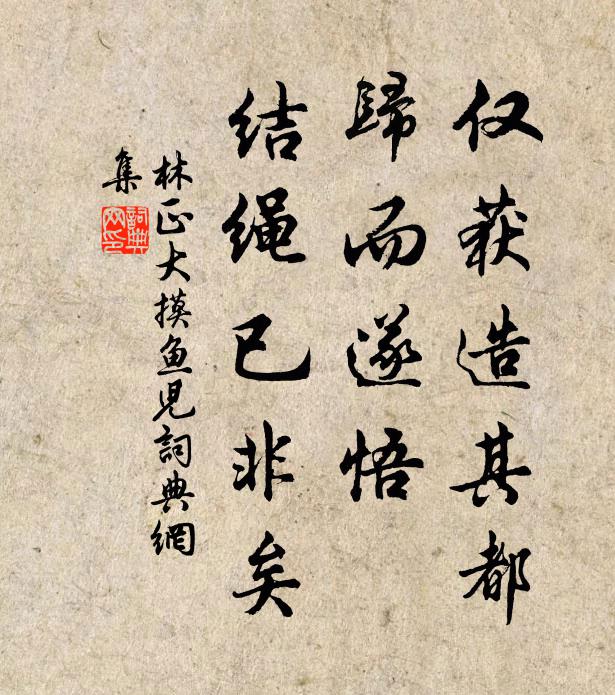 仅获造其都
歸而遂悟
结绳已非矣
林正大摸鱼児詞典網
集
詞典網印